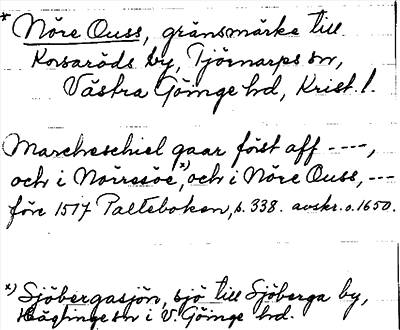 * Nöre Ouss, gränsmärke till
Korsaröds by, Tjörnarps sn,
Västra Göinge hd, Krist. l.
Marcheschiel gaar först aff ----,
och i Nörresöe,*) och i Nöre Ouss, ---
före 1517 Palteboken, s. 338. avskr. o. 1650.
*) Sjöbergasjön, sjö till Sjöberga by,
Häglinge sn i V. Göinge hd.